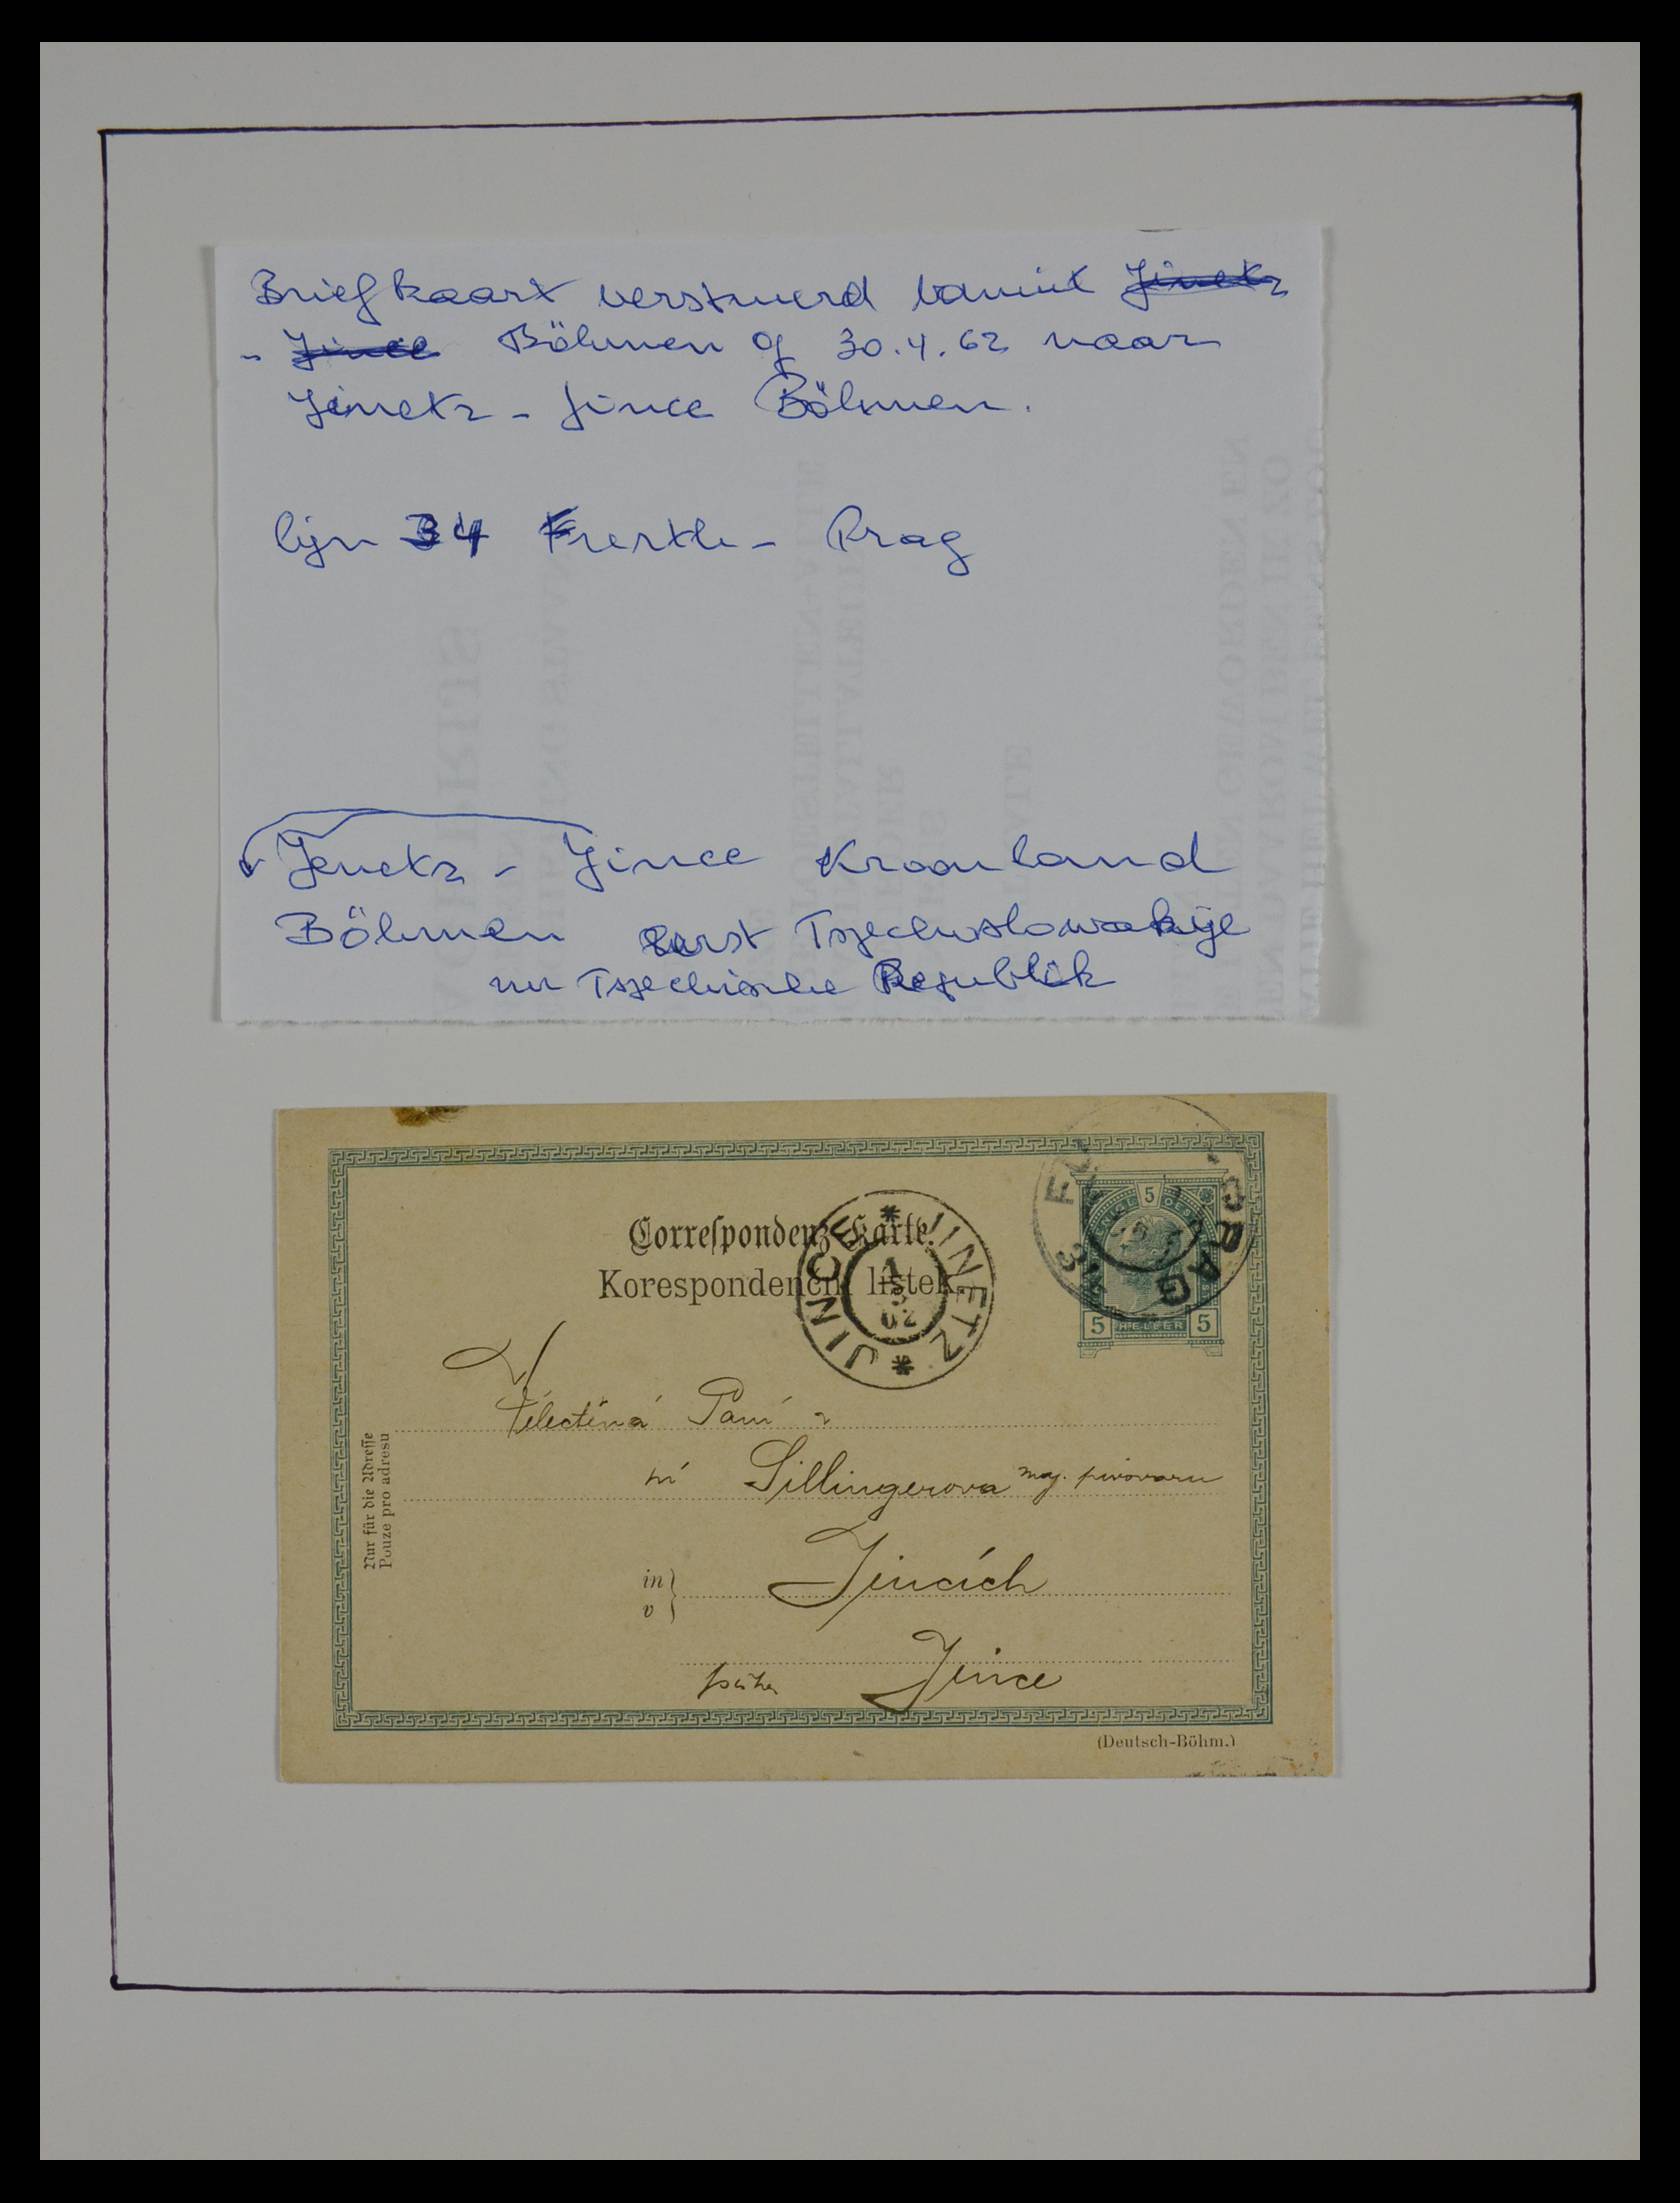 Briefkaart verstuurd vanuit Jinetz
- Jince Böhmen op 30.4.02 naar
Jinetz - Jince Böhmen.
lijn 34 Fuerth - Prag
Jenetz - Jince Kroonland
Böhmen eerst Tsjechoslowakije
nu Tsjechische Republiek
Correspondenz-Karte.
Korespondenční lístek.
JINETZ * JINCE *
1 5 02
PRAG
5
5 HELLER 5
Nur für die Adresse
Pouze pro adresu
Velectěná Paní
pí Sillingerova maj. pivovaru
in
v
Jincích
Jince
(Deutsch-Böhm.)